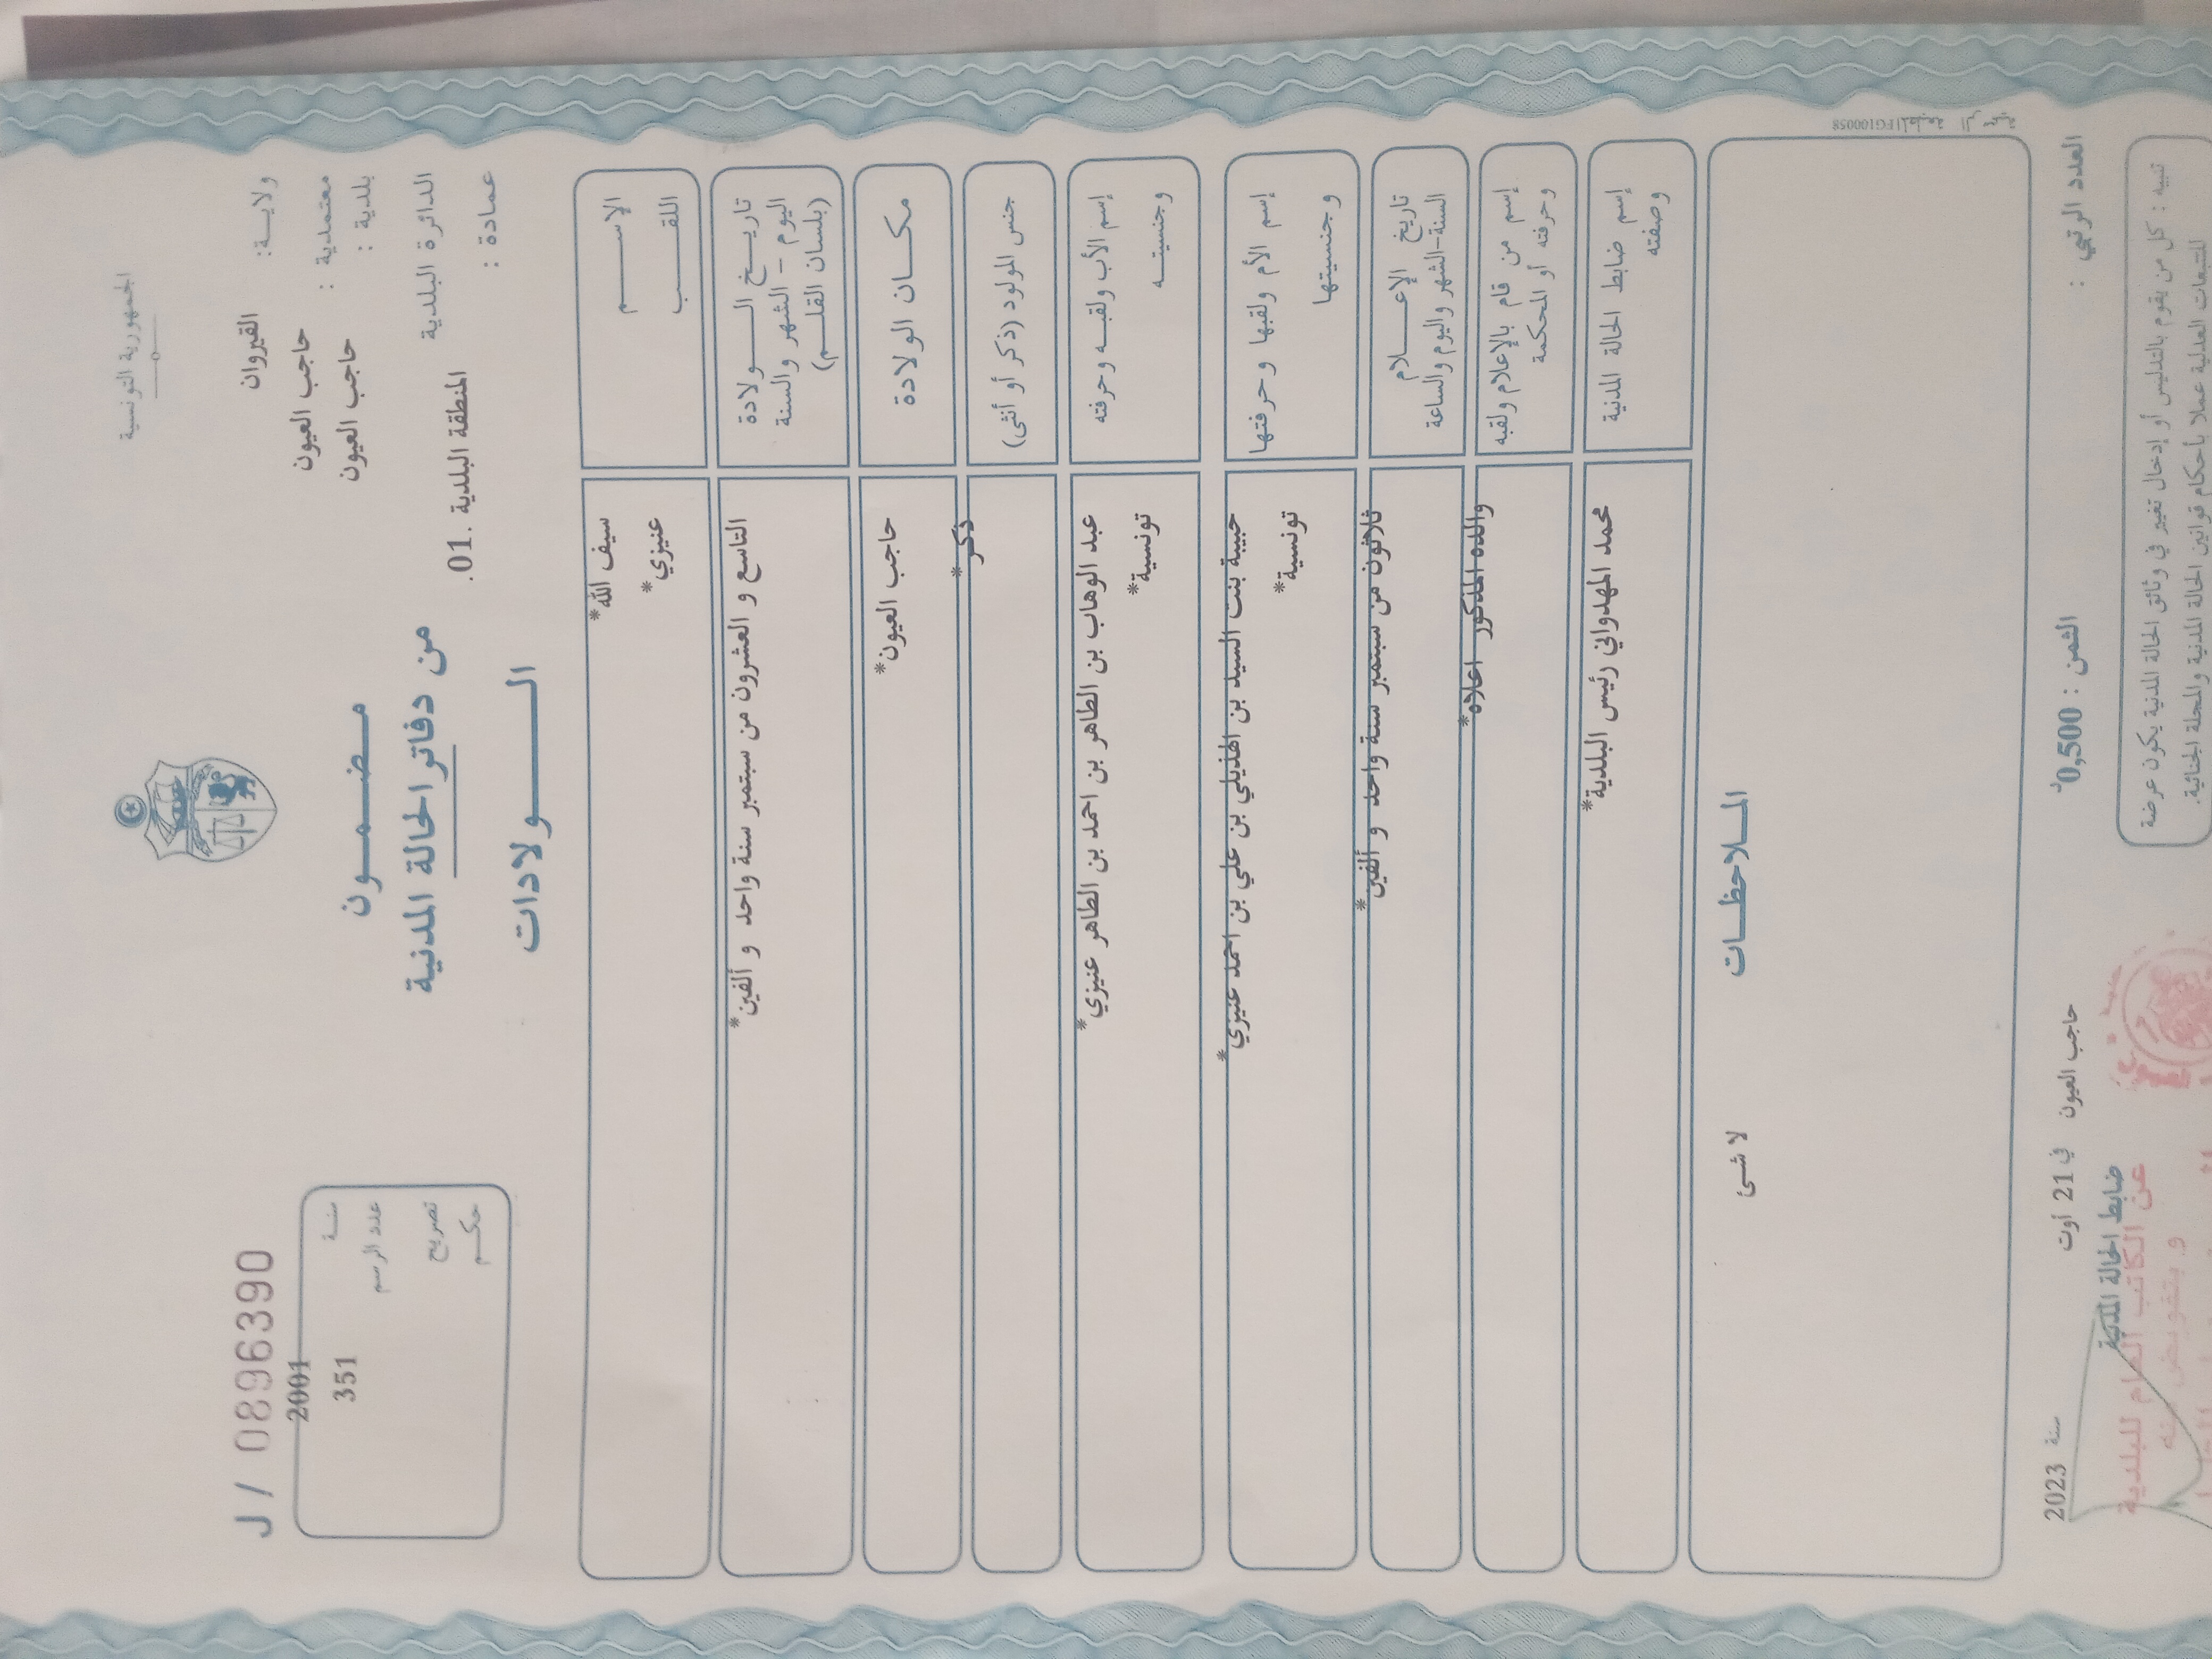 الجمهورية التونسية
ولاية: القيروان
معتمدية : حاجب العيون
بلدية : حاجب العيون
الدائرة البلدية
المنطقة البلدية .01.
عمادة :
مضمون
من دفاتر الحالة المدنية
الولادات
J / 0896390
سنة 2001
عدد الرسم 351
تصريح
حكم
الاسم سيف الله*
اللقب عنيزي*
تاريخ الولادة
اليوم - الشهر والسنة
(بلسان القلم)
التاسع و العشرون من سبتمبر سنة واحد و ألفين*
مكان الولادة حاجب العيون*
جنس المولود (ذكر أو أنثى) ذكر*
إسم الأب ولقبه وحرفته عبد الوهاب بن الطاهر بن احمد بن الطاهر عنيزي*
وجنسيته تونسية*
إسم الأم ولقبها وحرفتها حبيبة بنت السيد بن الهذيلي بن علي بن احمد عنيزي*
وجنسيتها تونسية*
تاريخ الإعلام
السنة-الشهر واليوم والساعة
ثلاثون من سبتمبر سنة واحد و ألفين*
إسم من قام بالإعلام ولقبه
وحرفته أو المحكمة
والده المذكور اعلاه*
إسم ضابط الحالة المدنية
وصفته
محمد المهدواني رئيس البلدية*
الملاحظات
لا شئ
FG100058
العدد الرتبي :
الثمن : 0,500د
حاجب العيون في 21 أوت سنة 2023
ضابط الحالة المدنية
عن الكاتب العام للبلدية
و بتفويض منه
تنبيه : كل من يقوم بالتدليس أو إدخال تغيير في وثائق الحالة المدنية يكون عرضة
للتتبعات العدلية عملا بأحكام قوانين الحالة المدنية والمجلة الجنائية.